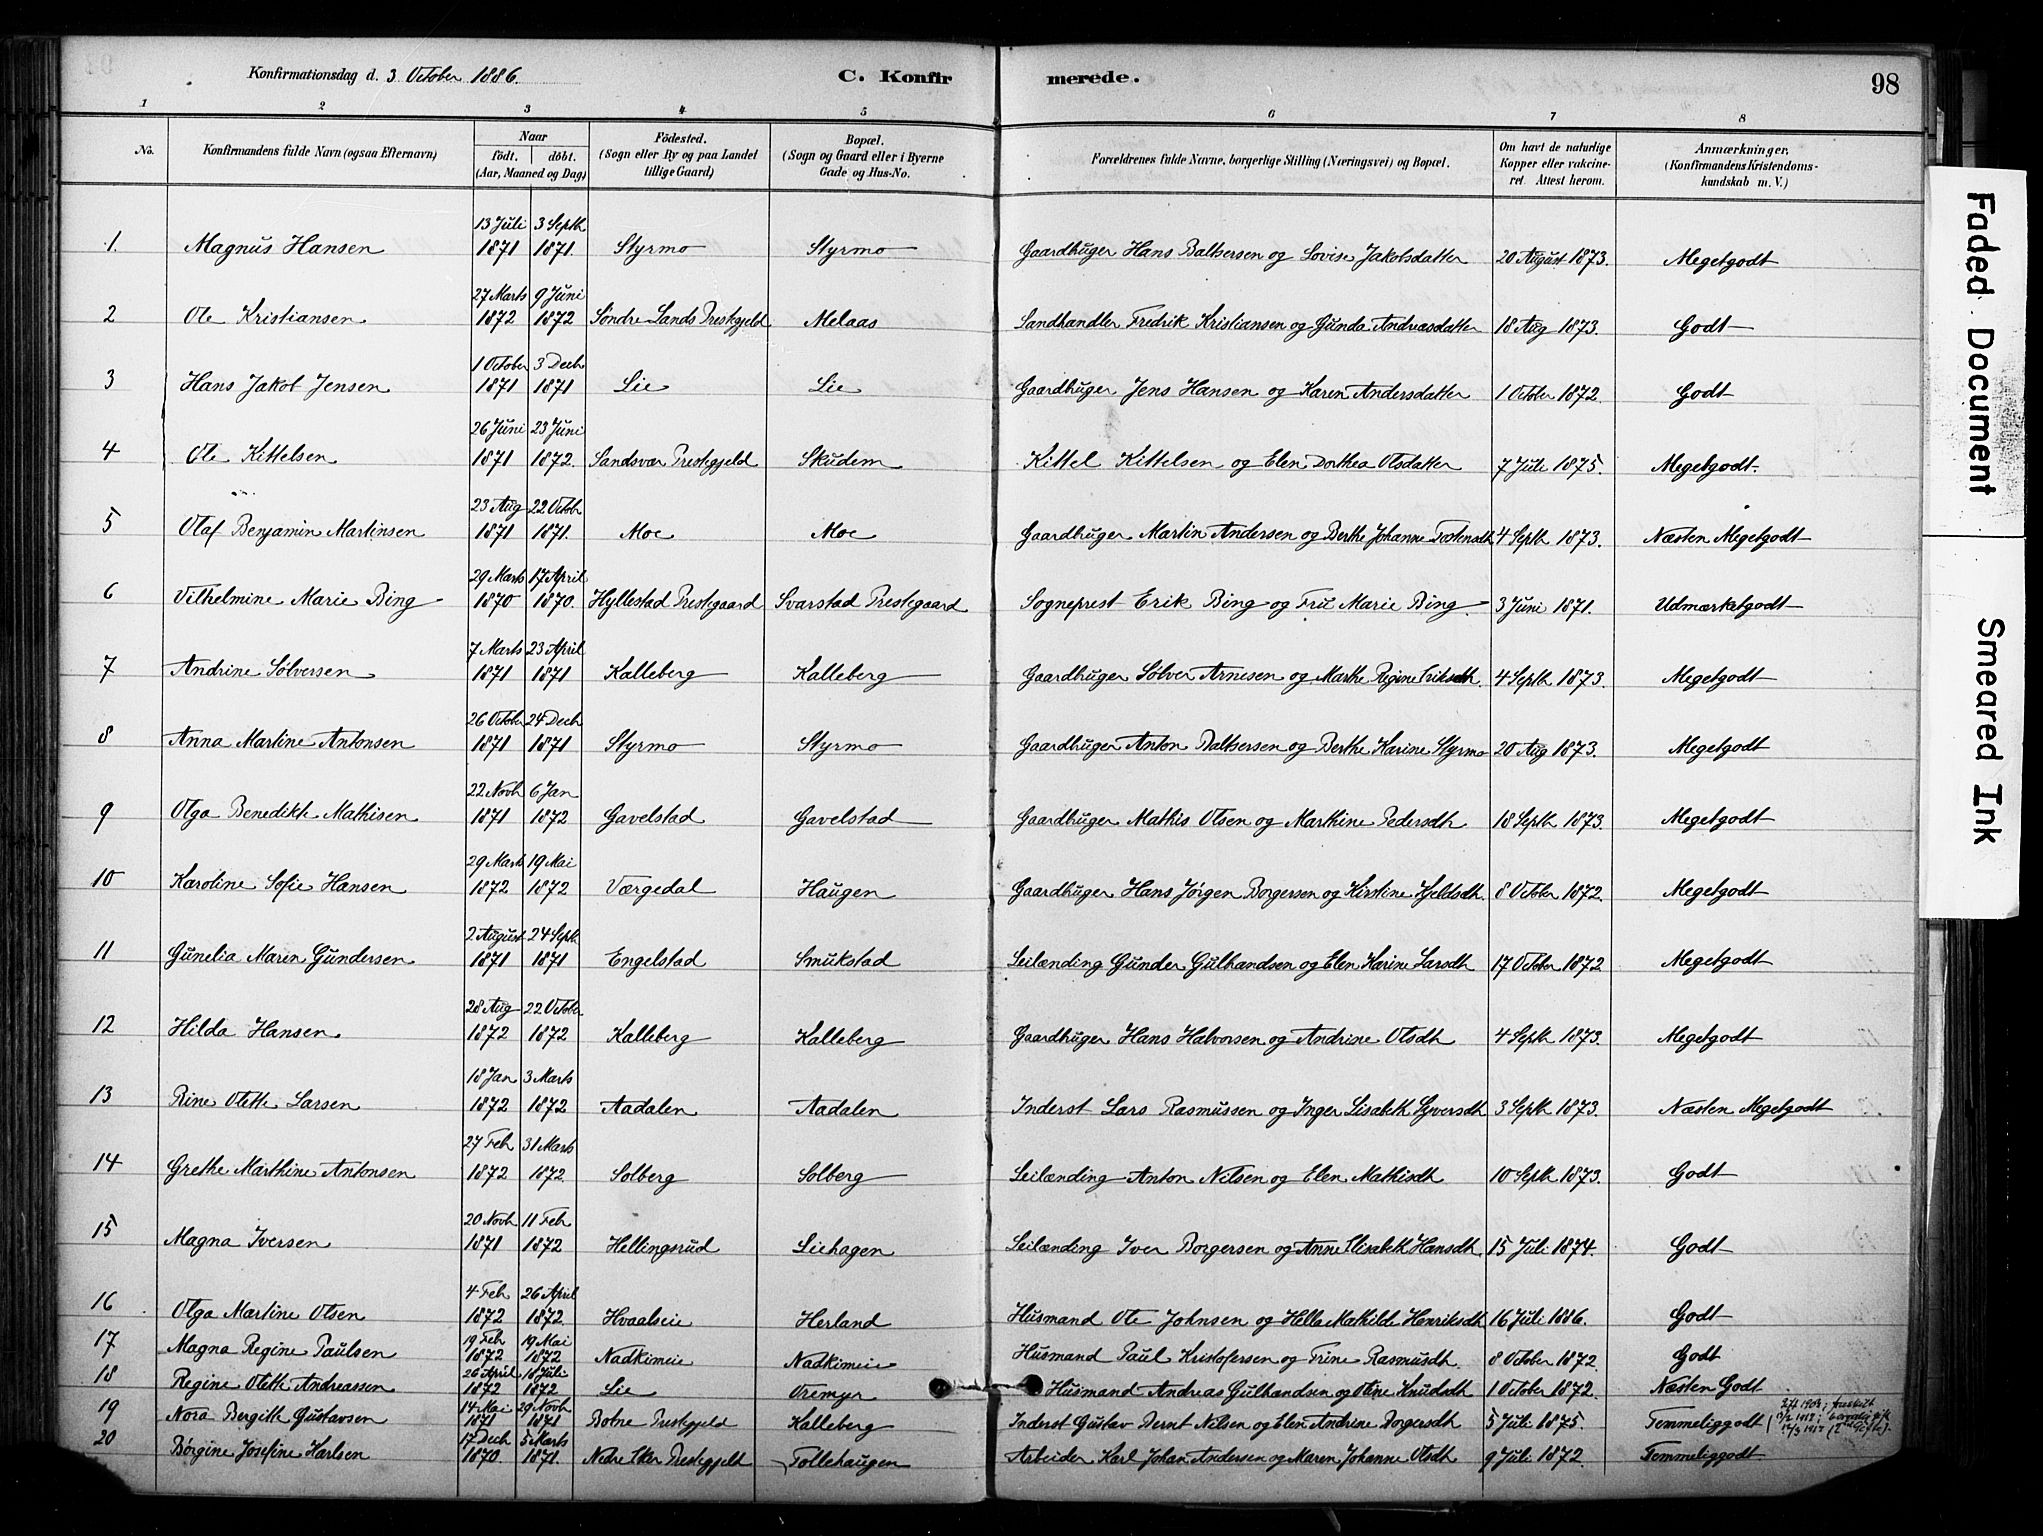 Konfirmationsdag d. 3 October 1886. C. Konfirmerede. 98
1 2 3 4 5 6 7 8
No. Konfirmandens fulde Navn (ogsaa Efternavn) Naar født. døbt. (Aar, Maaned og Dag) Fødested. (Sogn eller By og paa Landet tillige Gaard) Bopæl. (Sogn og Gaard eller i Byerne Gade og Hus-No. Forældrenes fulde Navne, borgerlige Stilling (Næringsvei) og Bopæl. Om havt de naturlige Kopper eller vakcineret. Attest herom. Anmærkninger, (Konfirmandens Kristendomskundskab m. V.)
1. Magnus Hansen 13 Juli 1871 3 Septb 1871. Styrmo Styrmo Gaardbruger Hans Baltsersen og Lovise Jakobsdatter 20 August 1873. Megetgodt
2 Ole Kristiansen 27 Marts 1872 9 Juni 1872 Søndre Lands Prestegjeld Melaas Landhandler Fredrik Kristiansen og Gunda Andreasdatter 18 Aug 1873. Godt
3 Hans Jakob Jensen 1 October 1871 3 Decb 1871 Lie Lie Gaardbruger Jens Hansen og Karen Andersdatter 1 October 1872. Godt
4 Ole Kittelsen 26 Juni 1871 23 Juni 1872. Sandsvær Prestegjeld Skudem Kittel Kittelsen og Elen Dorthea Olsdatter 7 Juli 1875. Megetgodt.
5 Olaf Benjamin Martinsen 23 Aug 1871 22 Octob 1871. Moe Moe Gaardbruger Martin Andersen og Berthe Johanne Tostensdtr 4 Septb 1873. Næsten Megetgodt
6 Vilhelmine Marie Bing 29 Marts 1870 17 April 1870. Hyllestad Prestegaard Svarstad Prestegaard Sogneprest Erik Bing og Fru Marie Bing 3 Juni 1871. Udmærketgodt
7 Andrine Sølversen 7 Marts 1871 23 April 1871 Kalleberg Kalleberg Gaardbruger Sølver Arnesen og Marthe Regine Eriksdtr. 4 Septb 1873. Megetgodt
8 Anna Martine Antonsen 26 October 1871 24 Decb 1871 Styrmo Styrmo Gaardbruger Anton Baltsersen og Berthe Karine Styrmo 20 Aug 1873. Megetgodt
9 Olga Benedikte Mathisen 22 Novb 1871 6 Jan 1872 Gavelstad Gavelstad Gaardbruger Mathis Olsen og Marthine Pedersdtr 18 Septb 1873. Megetgodt
10 Karoline Sofie Hansen 29 Marts 1872 19 Mai 1872 Værgedal Haugen Gaardbruger Hans Jørgen Borgersen og Kirstine Kjeldsdtr. 8 October 1872. Megetgodt
11 Gunelia Maren Gundersen 2 August 1871 24 Septb 1871 Engelstad Smukstad Leilænding Gunder Gulbrandsen og Elen Karine Larsdtr 17 October 1872 Megetgodt
12 Hilda Hansen 28 Aug 1872 22 October 1872 Kalleberg Kalleberg Gaardbruger Hans Halvorsen og Andrine Olsdtr 4 Septb 1873. Megetgodt
13 Rine Olette Larsen 18 Jan 1872 3 Marts 1872 Aadalen Aadalen Inderst Lars Rasmussen og Inger Lisabeth Syversdtr 3 Septb 1873. Næsten Megetgodt
14 Grethe Marthine Antonsen 27 Feb 1872 31 Marts 1872. Solberg Solberg Leilænding Anton Nilsen og Elen Mathisdtr 10 Septb 1873. Godt
15 Magna Iversen 20 Novb 1871 11 Feb 1872 Hellingsrud Liehagen Leilænding Iver Borgersen og Anne Elisabeth Hansdtr. 15 Juli 1874. Godt
16 Olga Martine Olsen 4 Feb 1872 26 April 1872. Hvaalseie Herland Husmand Ole Johnsen og Hella Mathilde Henriksdtr 16 Juli 1886. Godt
17 Magna Regine Paulsen 19 Feb 1872 19 Mai 1872 Nadkimeie Nadkimeie Husmand Paul Kristofersen og Trine Rasmusdtr. 8 October 1872. Godt
18 Regine Olette Andreassen 26 April 1872 18 Juli 1872 Lie Oremyr Husmand Andreas Gulbrandsen og Oline Knudsdtr 1 October 1872. Næsten Godt
19 Nora Bergith Gustavsen 14 Mai 1871 29 Novb 1871 Botne Prestegjeld Kalleberg Inderst Gustav Bernt Nilsen og Elen Andrine Borgersdtr. 5 Juli 1875. Temmeliggodt
20 Børgine Josefine Karlsen 17 Decb 1870. 5 Marts 1871. Nedre Eker Prestegjeld Tollehaugen Arbeider Karl Johan Andersen og Maren Johanne Olsdtr 9 Juli 1872. Temmeliggodt
Faded Document
Smeared Ink